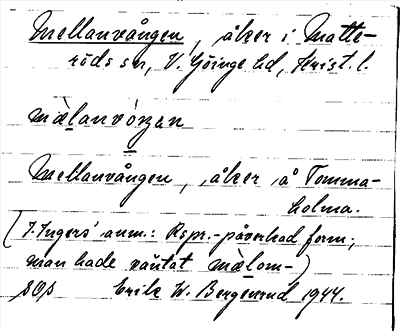 Mellanvången, åker i Matte-
röds sn, V. Göinge hd, Krist. l.
màlanvóŋen
Mellanvången, åker å Tomma-
holma.
(I. Ingers' anm.: Rspr.-påverkad form;
man hade väntat màlom-)
SOS Erik W. Bergenrud 1944.